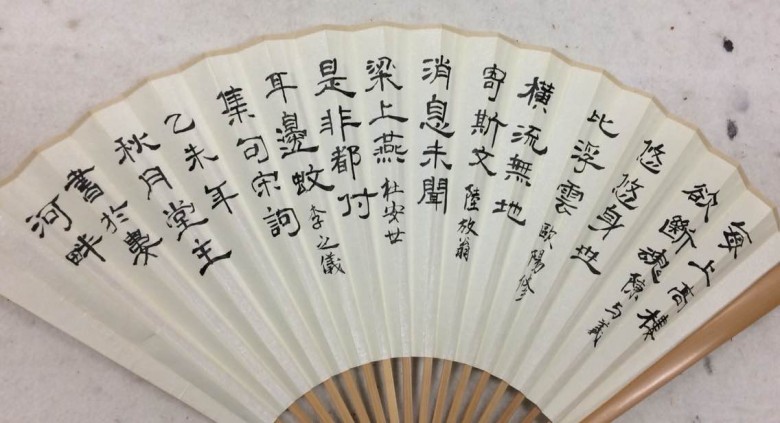 每上高樓
欲斷魂 陳与義
悠悠身世
比浮雲 歐陽修
橫流無地
寄斯文 陸放翁
消息未聞
梁上燕 杜安世
是非都付
耳邊蚊 李之儀
集句宋詞
乙未年
秋月堂主
書於婁
河畔